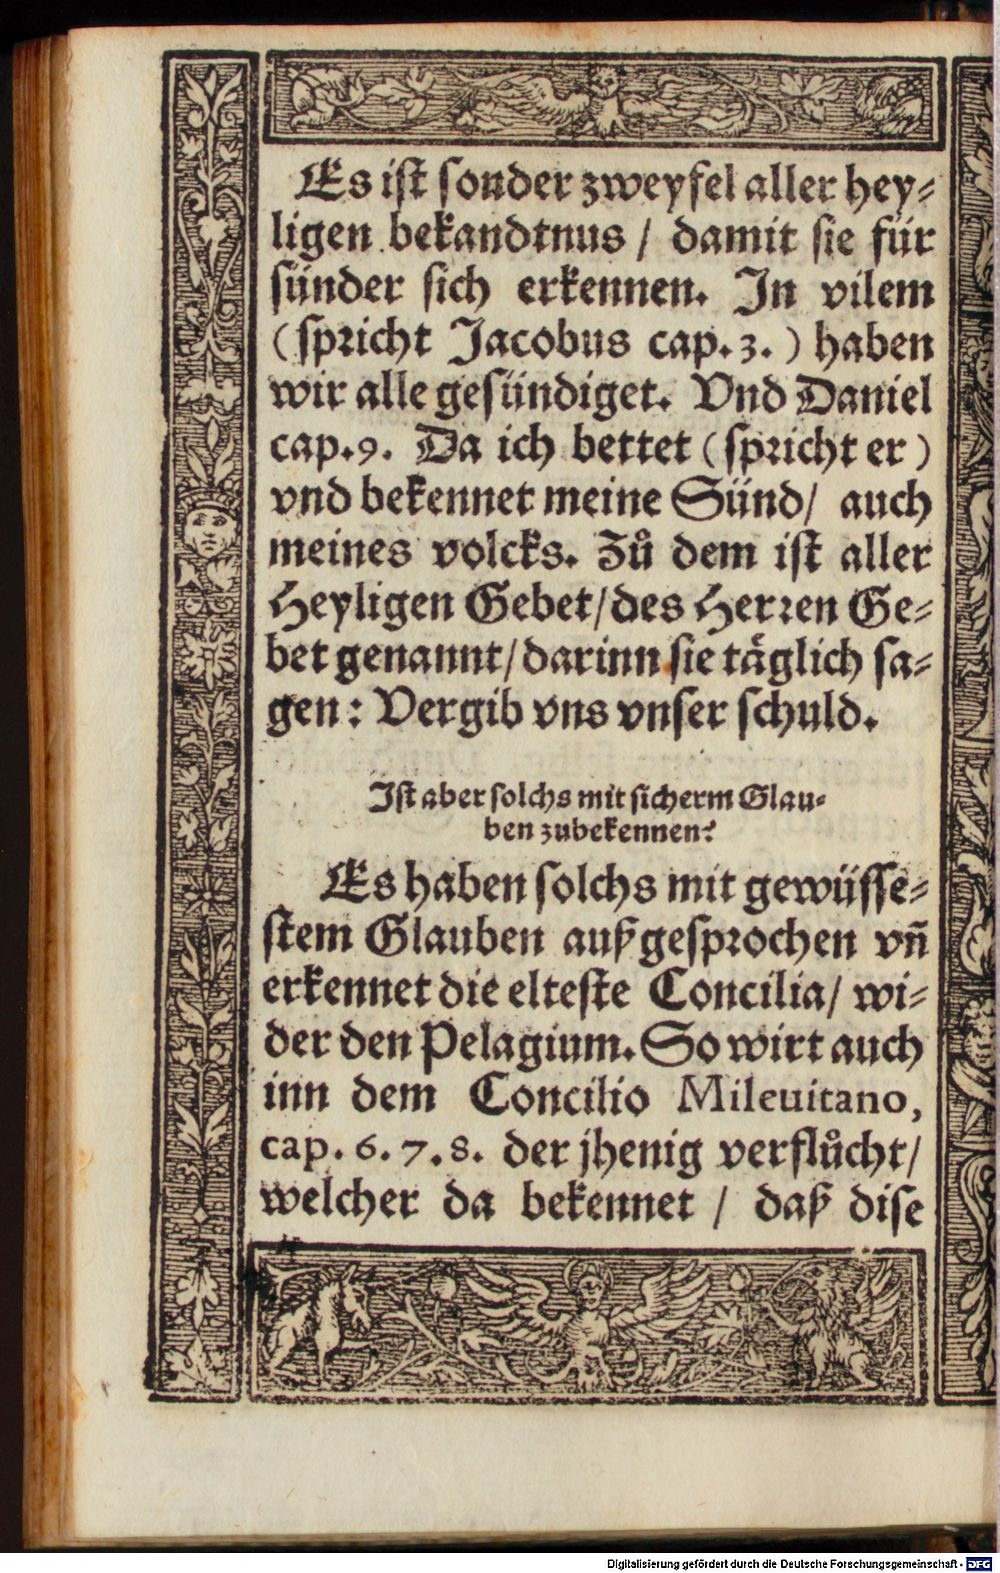 Es ist sonder zweyfel aller hey⸗
ligen bekandtnus / damit sie für
sünder sich erkennen. In vilem
(spricht Jacobus cap. 3.) haben
wir alle gesündiget. Vnd Daniel
cap. 9. Da ich bettet (spricht er)
vnd bekennet meine Sünd / auch
meines volcks. Zů dem ist aller
Heyligen Gebet / des Herren Ge⸗
bet genannt / darinn sie täglich sa⸗
gen: Vergib vns vnser schuld.
Ist aber solchs mit sicherm Glau⸗
ben zubekennen?
Es haben solchs mit gewüsse⸗
stem Glauben außgesprochen vñ
erkennet die elteste Concilia / wi⸗
der den Pelagium. So wirt auch
inn dem Concilio Mileuitano,
cap. 6. 7. 8. der jhenig verflůcht /
welcher da bekennet / daß dise
Digitalisierung gefördert durch die Deutsche Forschungsgemeinschaft - DFG